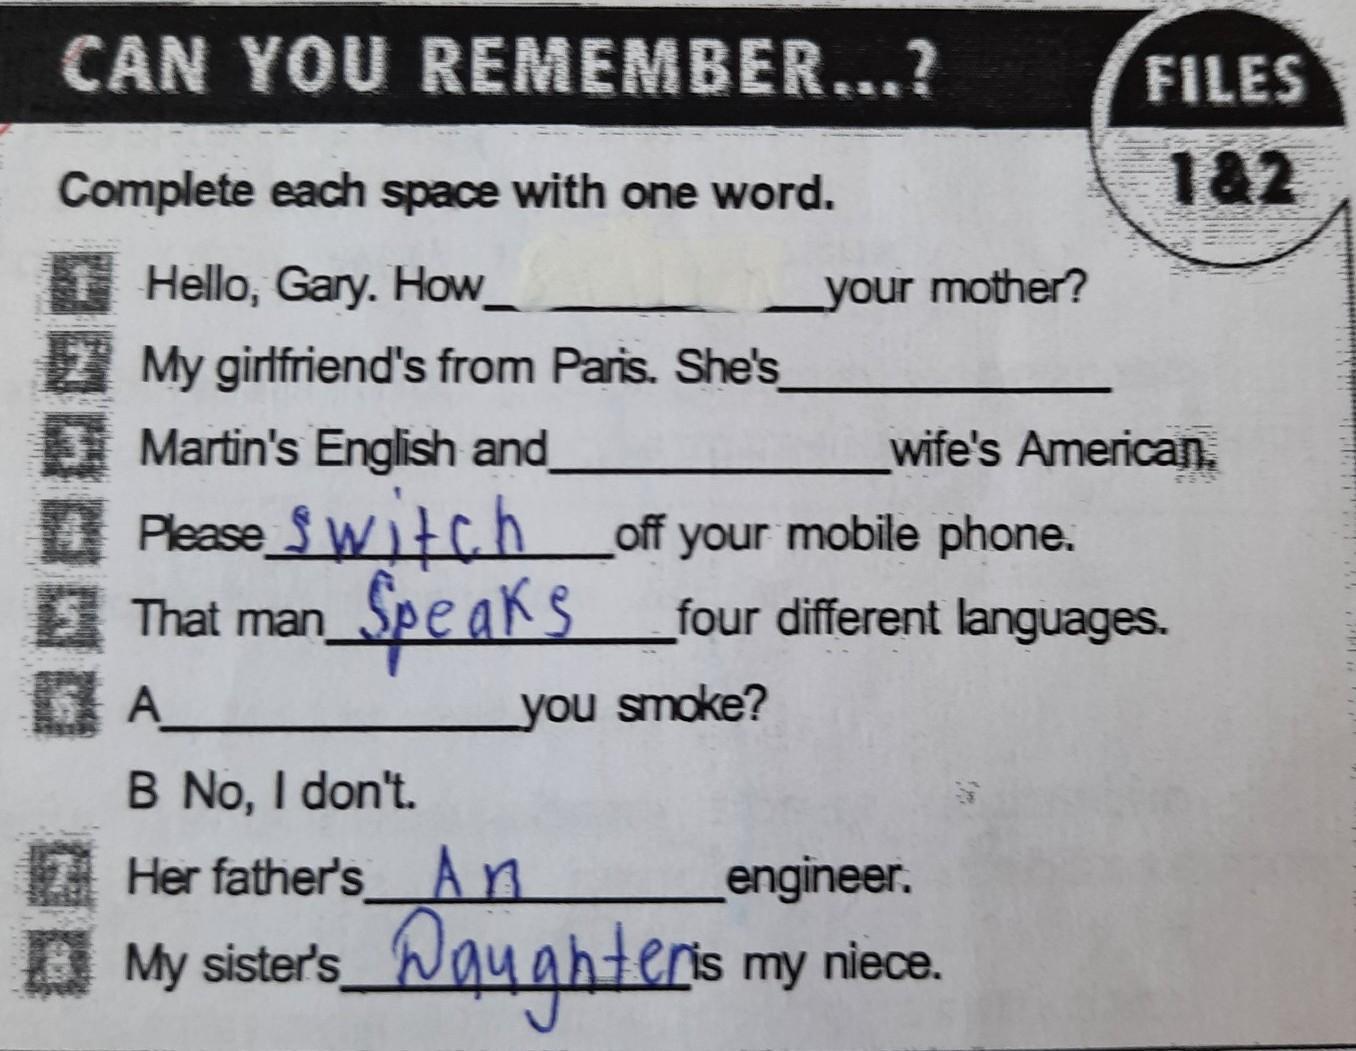 CAN YOU REMEMBER...?
FILES
1&2
Complete each space with one word.
1 Hello, Gary. How_ __your mother?
2 My girlfriend's from Paris. She's__________
3 Martin's English and__________wife's American.
4 Please switch off your mobile phone.
5 That man Speaks four different languages.
6 A__________you smoke?
B No, I don't.
7 Her father's An engineer.
8 My sister's Daughter is my niece.